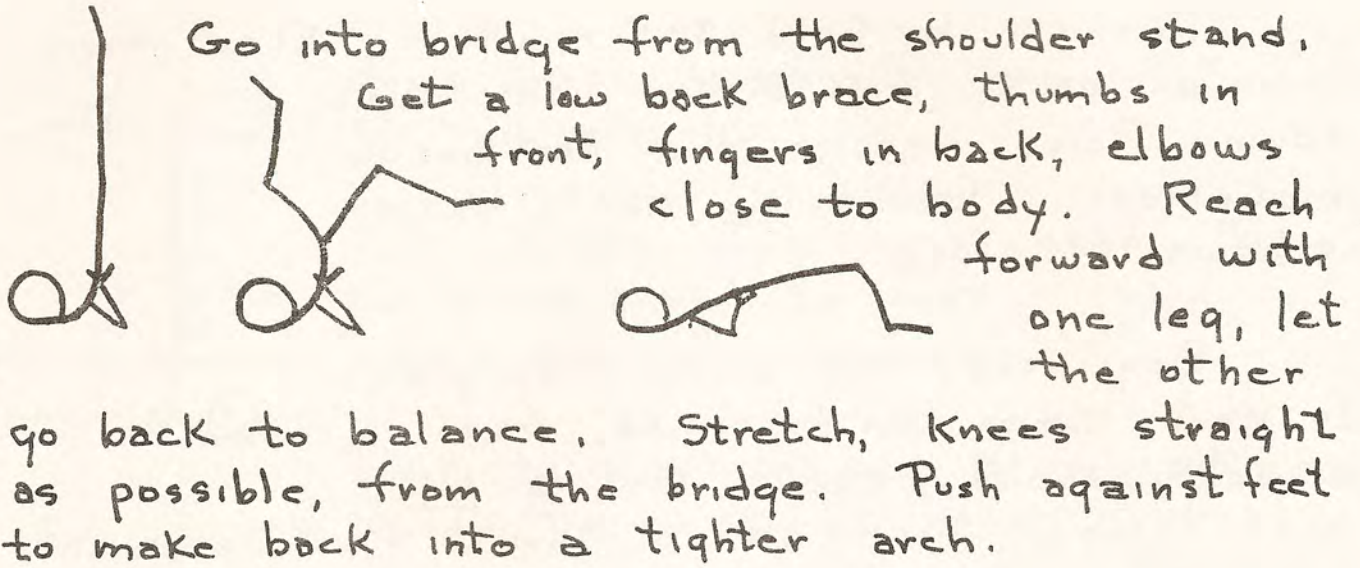 Go into bridge from the shoulder stand.
Get a low back brace, thumbs in
front, fingers in back, elbows
close to body. Reach
forward with
one leg, let
the other
go back to balance. Stretch, Knees straight
as possible, from the bridge. Push against feet
to make back into a tighter arch.